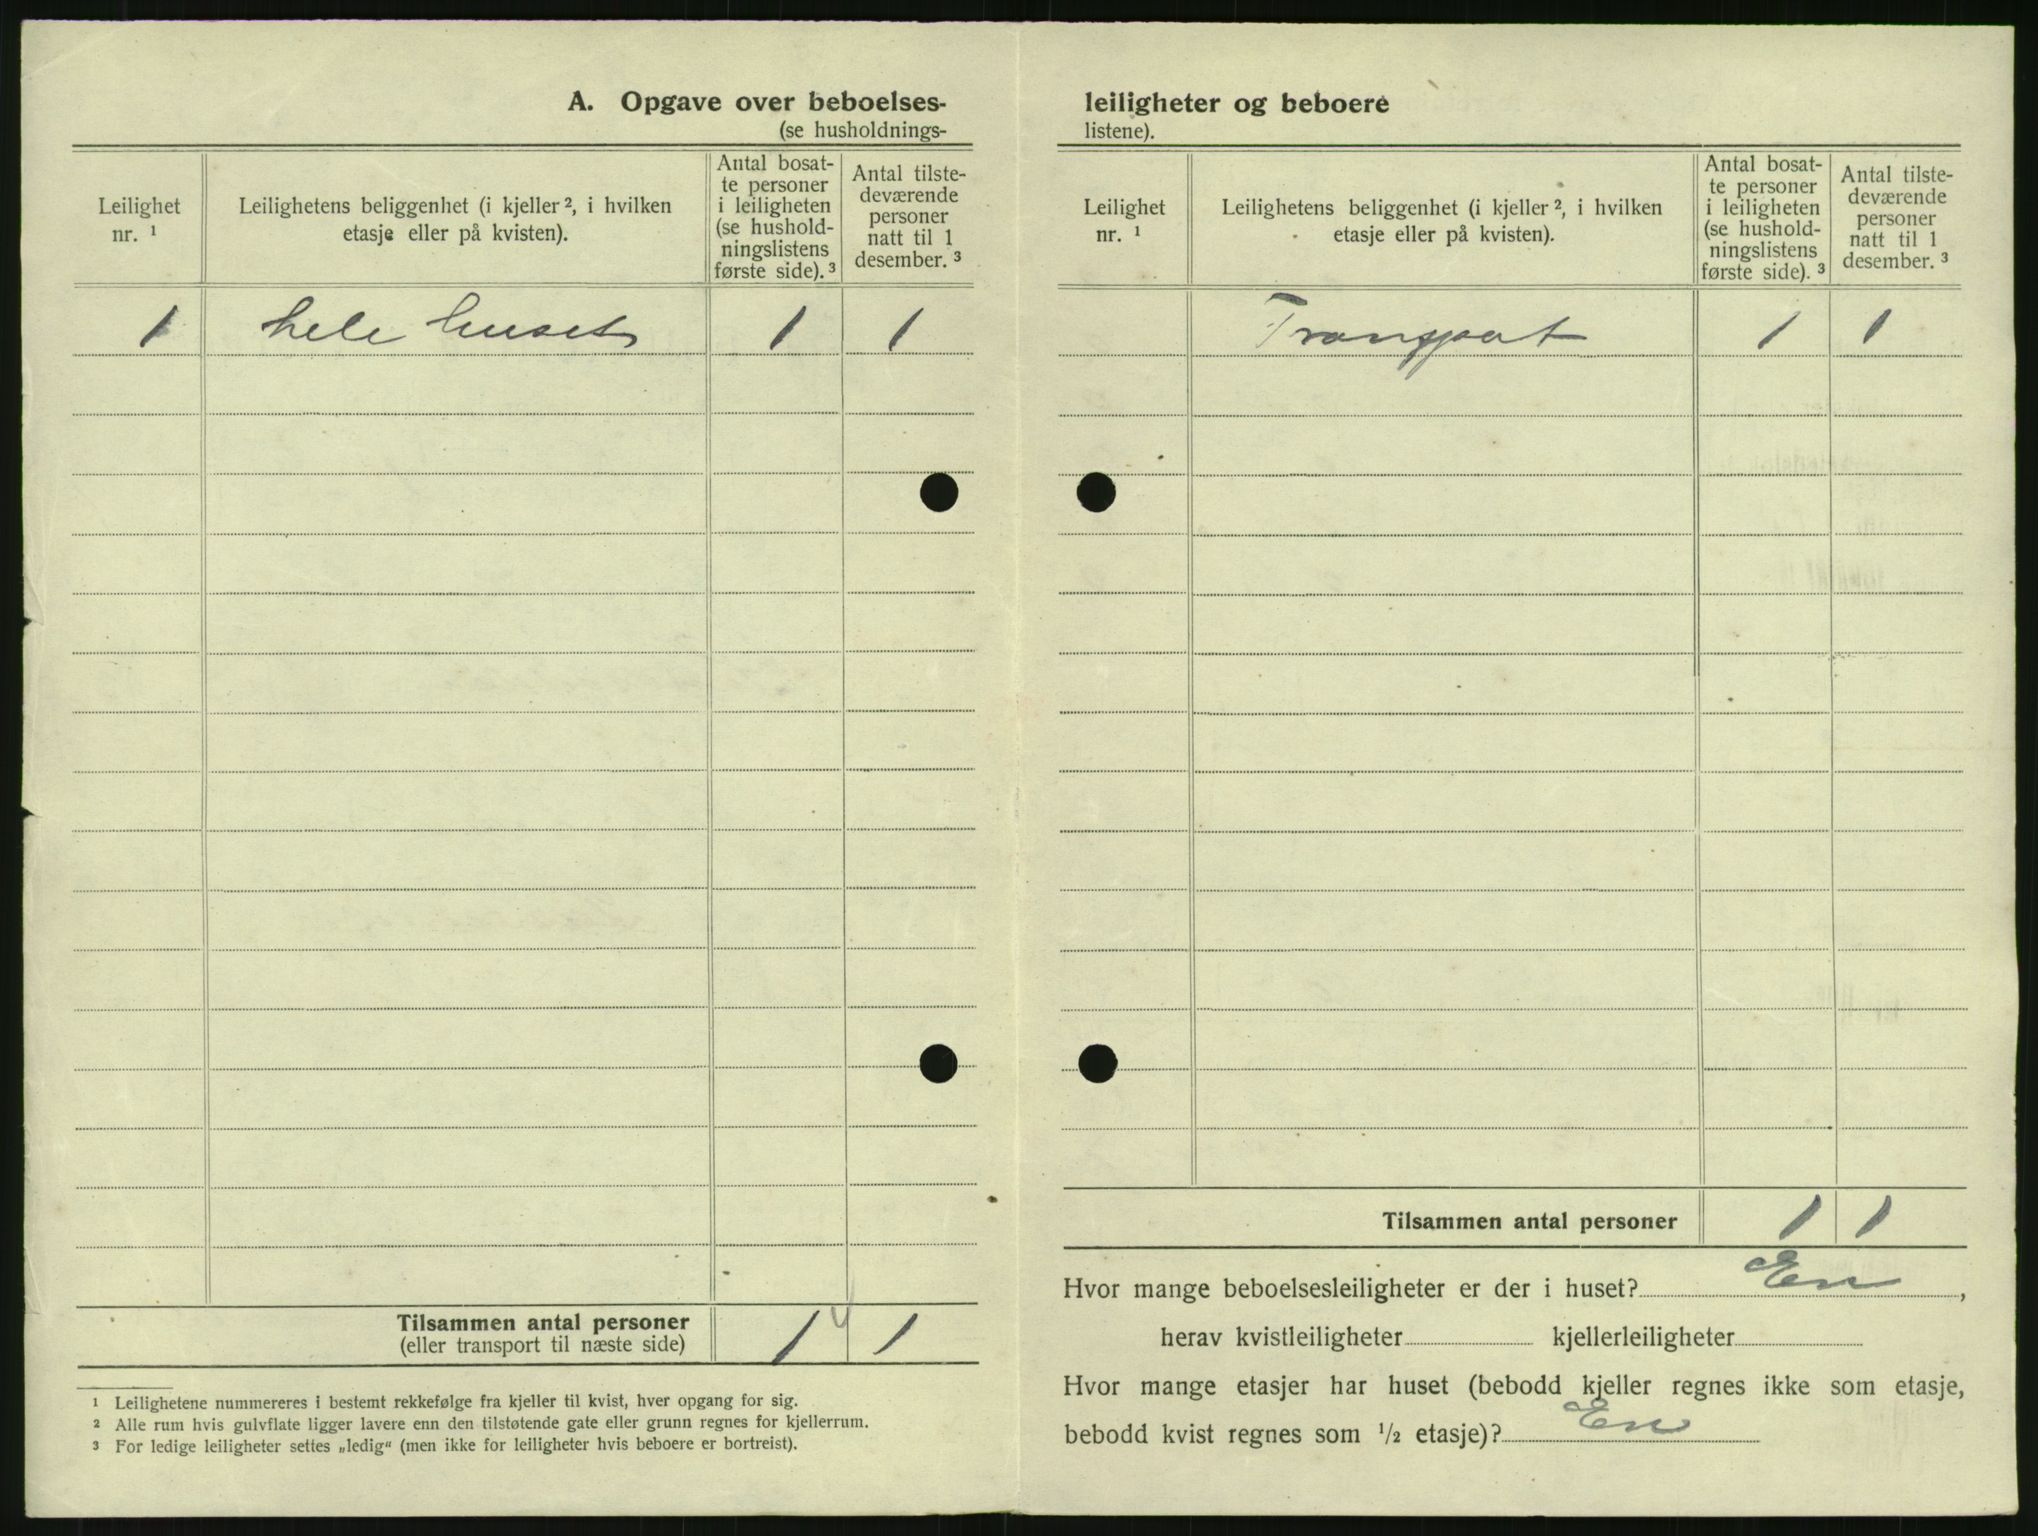 A. Opgave over beboelses-
(se husholdnings-
Leilighet
nr. ¹
Leilighetens beliggenhet (i kjeller ², i hvilken
etasje eller på kvisten).
Antal bosat-
te personer
i leiligheten
(se hushold-
ningslistens
første side). ³
Antal tilste-
deværende
personer
natt til 1
desember. ³
1 hele huset 1 1
Tilsammen antal personer
(eller transport til næste side)
1 1
¹ Leilighetene nummereres i bestemt rekkefølge fra kjeller til kvist, hver opgang for sig.
² Alle rum hvis gulvflate ligger lavere enn den tilstøtende gate eller grunn regnes for kjellerrum.
³ For ledige leiligheter settes „ledig“ (men ikke for leiligheter hvis beboere er bortreist).
leiligheter og beboere
listene).
Leilighet
nr. ¹
Leilighetens beliggenhet (i kjeller ², i hvilken
etasje eller på kvisten).
Antal bosat-
te personer
i leiligheten
(se hushold-
ningslistens
første side). ³
Antal tilste-
deværende
personer
natt til 1
desember. ³
Transport 1 1
Tilsammen antal personer 1 1
Hvor mange beboelsesleiligheter er der i huset? En,
herav kvistleiligheter kjellerleiligheter
Hvor mange etasjer har huset (bebodd kjeller regnes ikke som etasje,
bebodd kvist regnes som ½ etasje)? En